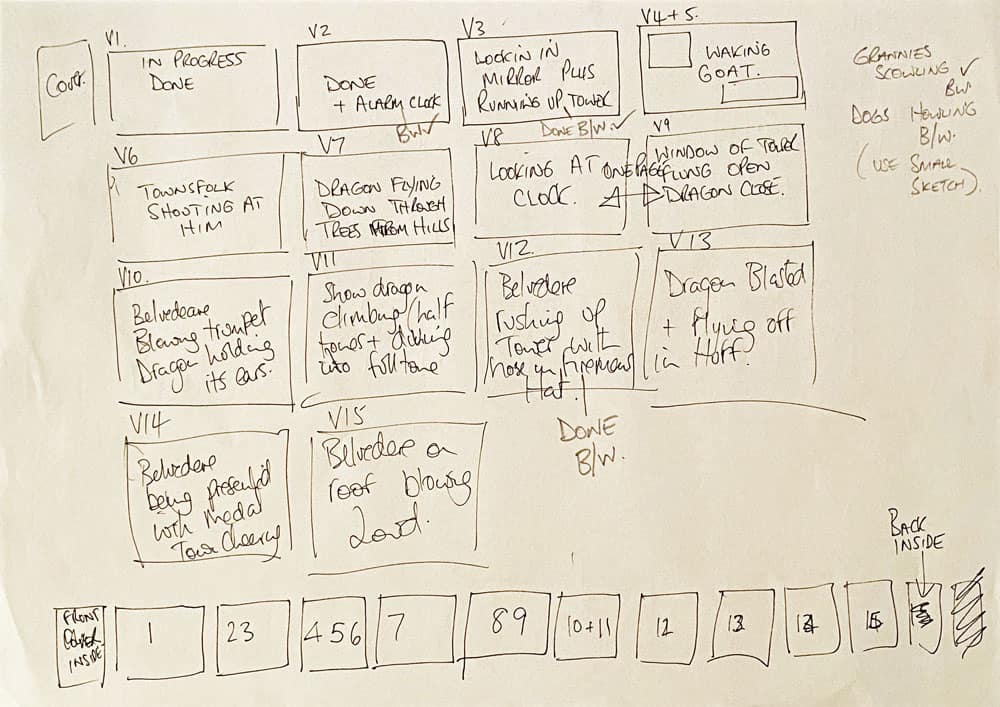 Cover.
V1.
IN PROGRESS
DONE
V2
DONE
+ ALARM CLOCK
BW ✓
V3
LOOKIN IN
MIRROR PLUS
RUNNING UP TOWER
DONE B/W. ✓
V4+5.
WAKING
GOAT.
GRANNIES
SCOWLING ✓
BW
DOGS HOWLING
B/W.
(USE SMALL
SKETCH).
V6
TOWNSFOLK
SHOOTING AT
HIM
V7
DRAGON FLYING
DOWN THROUGH
TREES FROM HILLS
V8
LOOKING AT
CLOCK.
ONE PAGE
V9
WINDOW OF TOWER
FLUNG OPEN
DRAGON CLOSE.
V10.
Belvedeare
Blowing trumpet
Dragon holding
its ears.
V11
Show dragon
climbing/half
tones + clicking
into full tone
V12.
Belvedere
rushing up
Tower with
hose in firemans
Hat.
DONE
B/W.
V13
Dragon Blasted
+ flying off
in Huff.
V14
Belvedere
being presented
with medal
Town Cheering
V15
Belvedere on
roof blowing
Loud.
BACK
INSIDE
FRONT
COVER
INSIDE
1
2 3
4 5 6
7
8 9
10+11
12
13
14
15